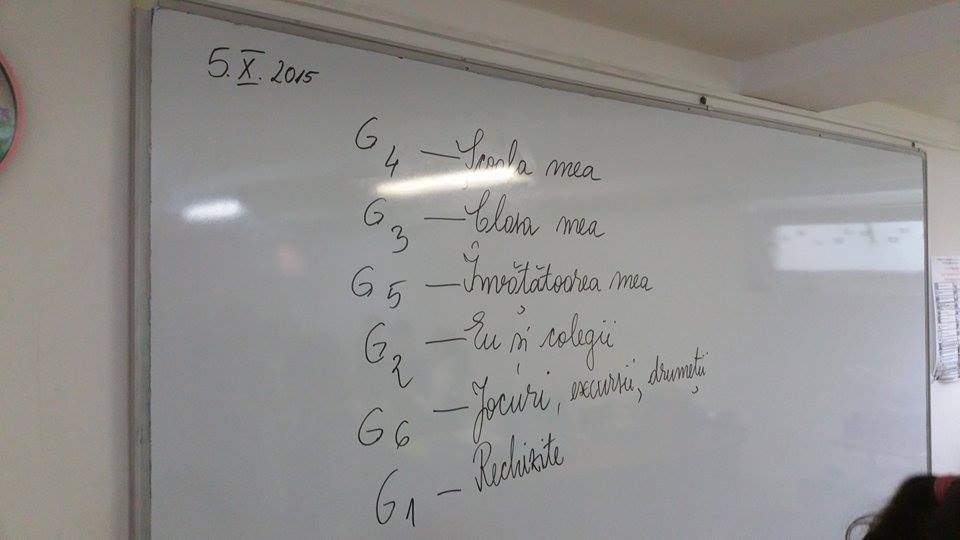 5. X. 2015
G4 — Școala mea
G3 — Clasa mea
G5 — Învățătoarea mea
G2 — Eu și colegii
G6 — Jocuri, excursii, drumeții
G1 — Rechizite